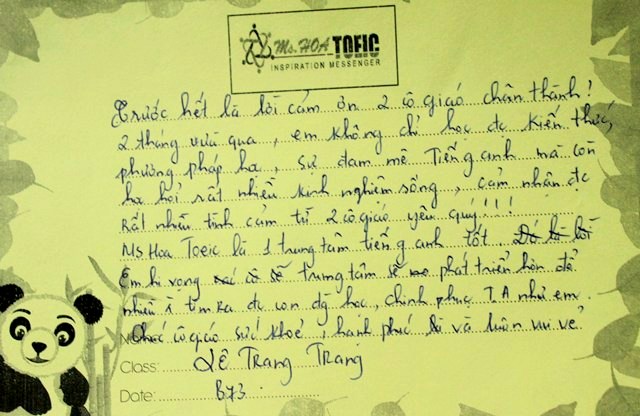 Ms. HOA TOEIC
INSPIRATION MESSENGER
Trước hết là lời cảm ơn 2 cô giáo chân thành!
2 tháng vừa qua, em không chỉ học đc kiến thức,
phương pháp học, sự đam mê Tiếng anh mà còn
học hỏi rất nhiều kinh nghiệm sống, cảm nhận đc
Rất nhiều tình cảm từ 2 cô giáo yêu quý!!!
Ms Hoa Toeic là 1 trung tâm tiếng anh tốt. Đó là lời
Em hi vọng trung tâm sẽ phát triển hơn để
nhiều tìm ra đc con đg học, chinh phục T.A như em.
Chúc cô giáo sức khoẻ, hạnh phúc và luôn vui vẻ
Class: LÊ Trang Trang
Date: B73